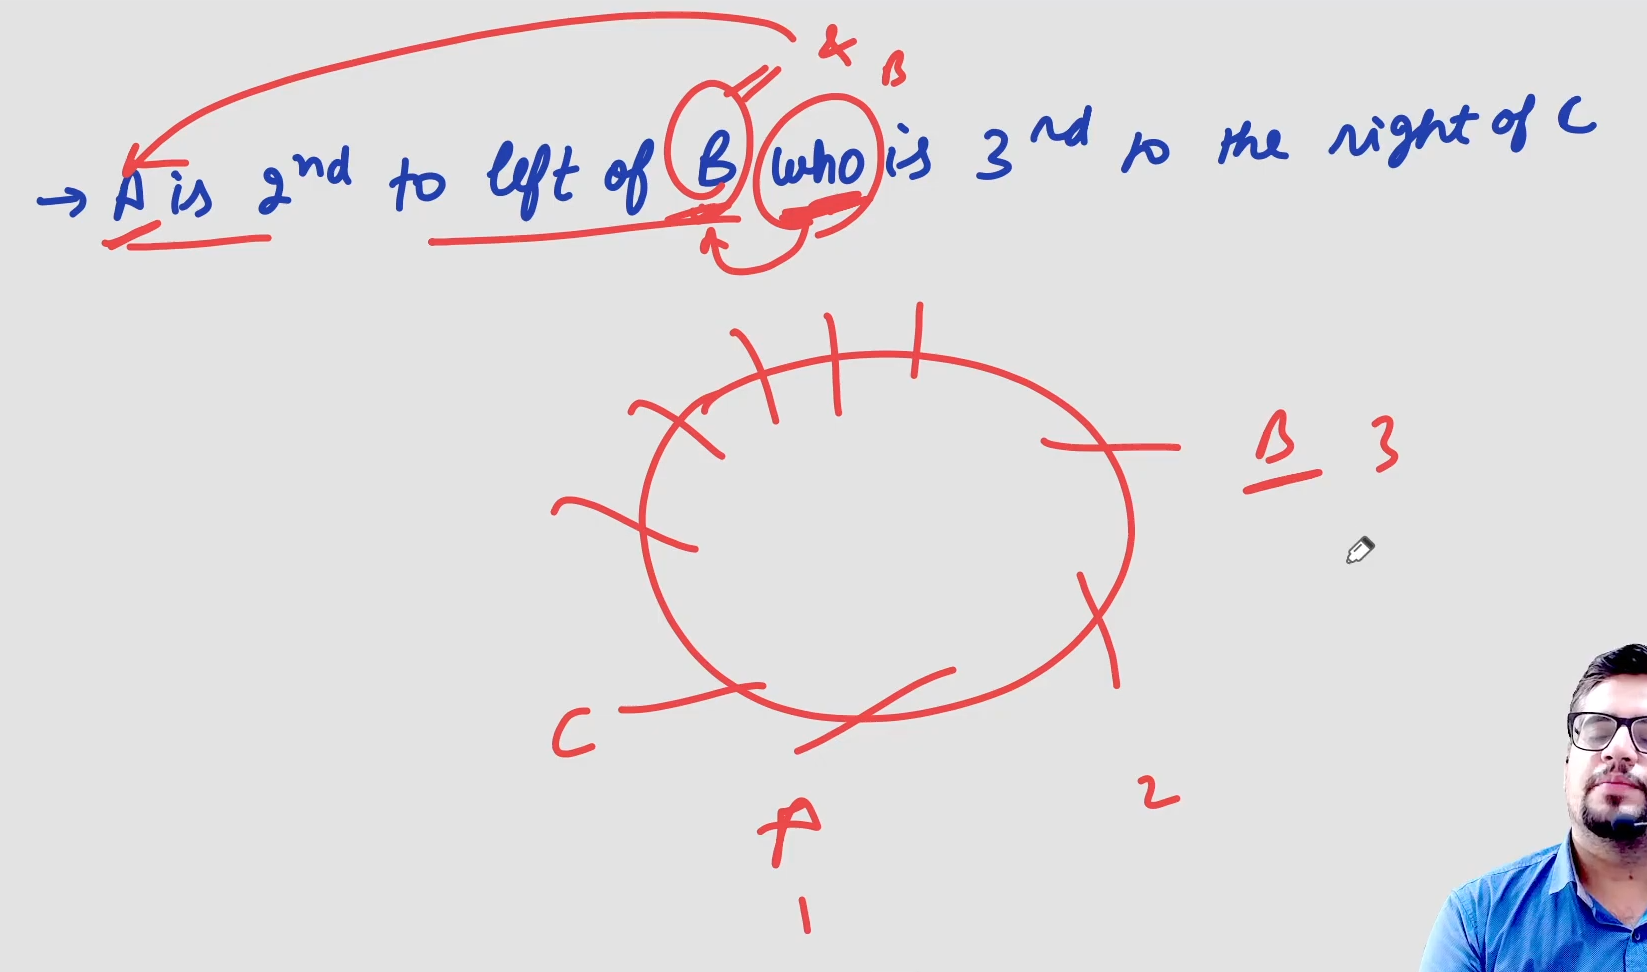 & B
→ A is 2nd to left of B who is 3rd to the right of C
B 3
C
2
A
1